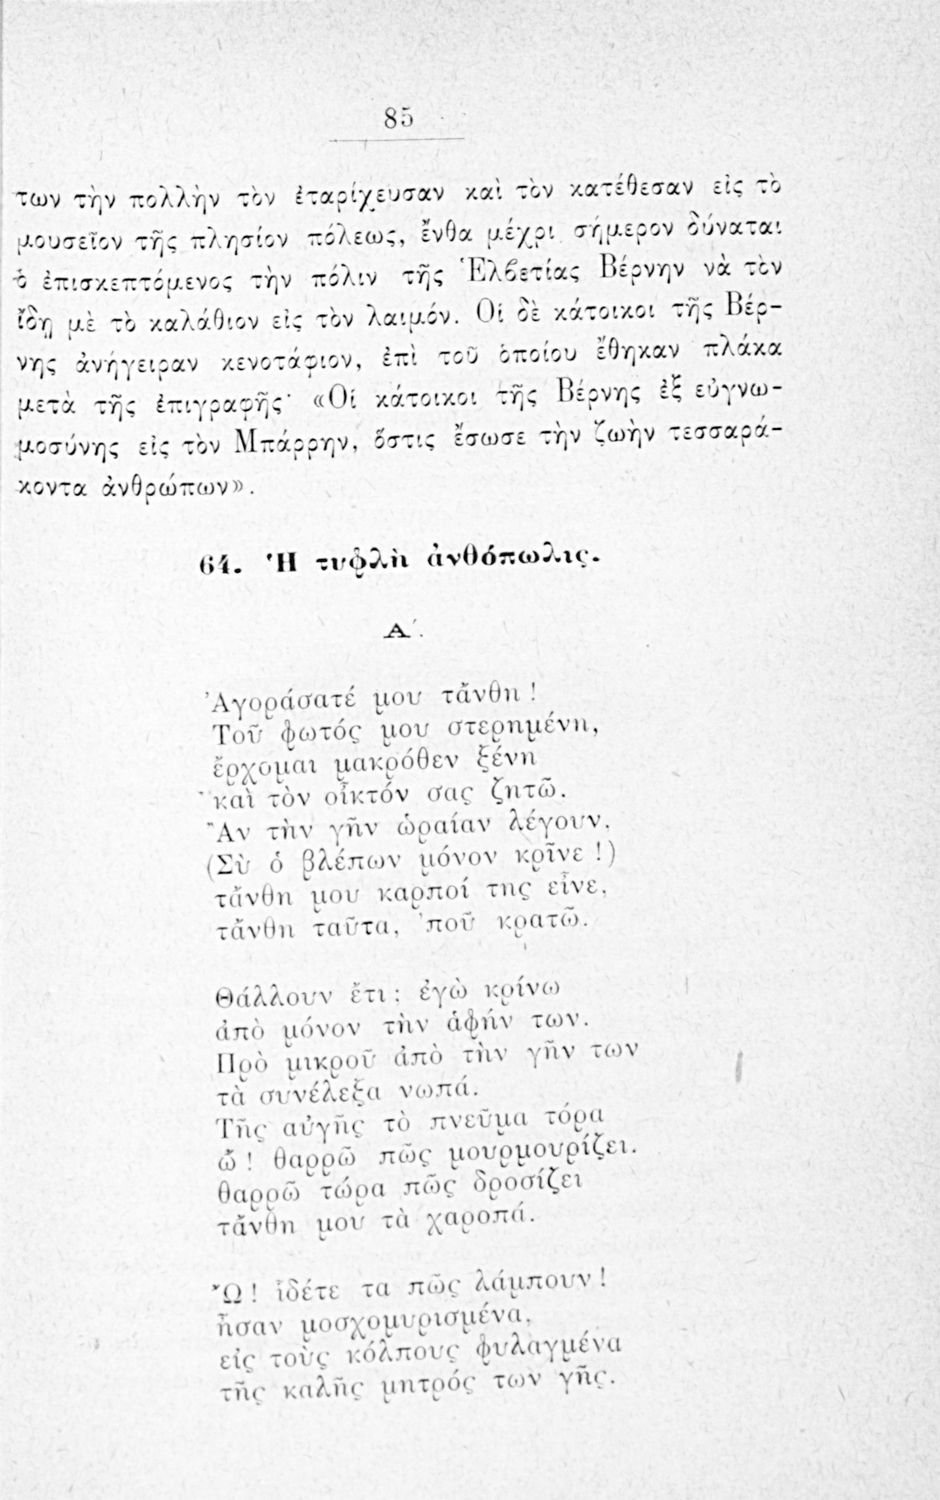 85
των τὴν πολλὴν τὸν ἐταρίχευσαν καὶ τὸν κατέθεσαν εἰς τὸ
μουσεῖον τῆς πλησίον πόλεως, ἔνθα μέχρι σήμερον δύναται
ὁ ἐπισκεπτόμενος τὴν πόλιν τῆς Ἑλβετίας Βέρνην νὰ τὸν
ἴδῃ μὲ τὸ καλάθιον εἰς τὸν λαιμόν. Οἱ δὲ κάτοικοι τῆς Βέρ-
νης ἀνήγειραν κενοτάφιον, ἐπὶ τοῦ ὁποίου ἔθηκαν πλάκα
μετὰ τῆς ἐπιγραφῆς· «Οἱ κάτοικοι τῆς Βέρνης ἐξ εὐγνω-
μοσύνης εἰς τὸν Μπάρρην, ὅστις ἔσωσε τὴν ζωὴν τεσσαρά-
κοντα ἀνθρώπων».
64. Ἡ τυφλὴ ἀνθόπωλις.
Α΄.
Ἀγοράσατέ μου τἄνθη !
Τοῦ φωτός μου στερημένη,
ἔρχομαι μακρόθεν ξένη
καὶ τὸν οἶκτόν σας ζητῶ.
Ἂν τὴν γῆν ὡραίαν λέγουν,
(Σὺ ὁ βλέπων μόνον κρῖνε !)
τἄνθη μου καρποί της εἶνε,
τἄνθη ταῦτα, ’ποῦ κρατῶ.
Θάλλουν ἔτι ; ἐγὼ κρίνω
ἀπὸ μόνον τὴν ἁφήν των.
Πρὸ μικροῦ ἀπὸ τὴν γῆν των
τὰ συνέλεξα νωπά.
Τῆς αὐγῆς τὸ πνεῦμα τόρα
ὤ ! θαρρῶ πῶς μουρμουρίζει.
θαρρῶ τώρα πῶς δροσίζει
τἄνθη μου τὰ χαροπά.
Ὤ ! ἰδέτε τα πῶς λάμπουν !
ἦσαν μοσχομυρισμένα,
εἰς τοὺς κόλπους φυλαγμένα
τῆς καλῆς μητρός των γῆς.